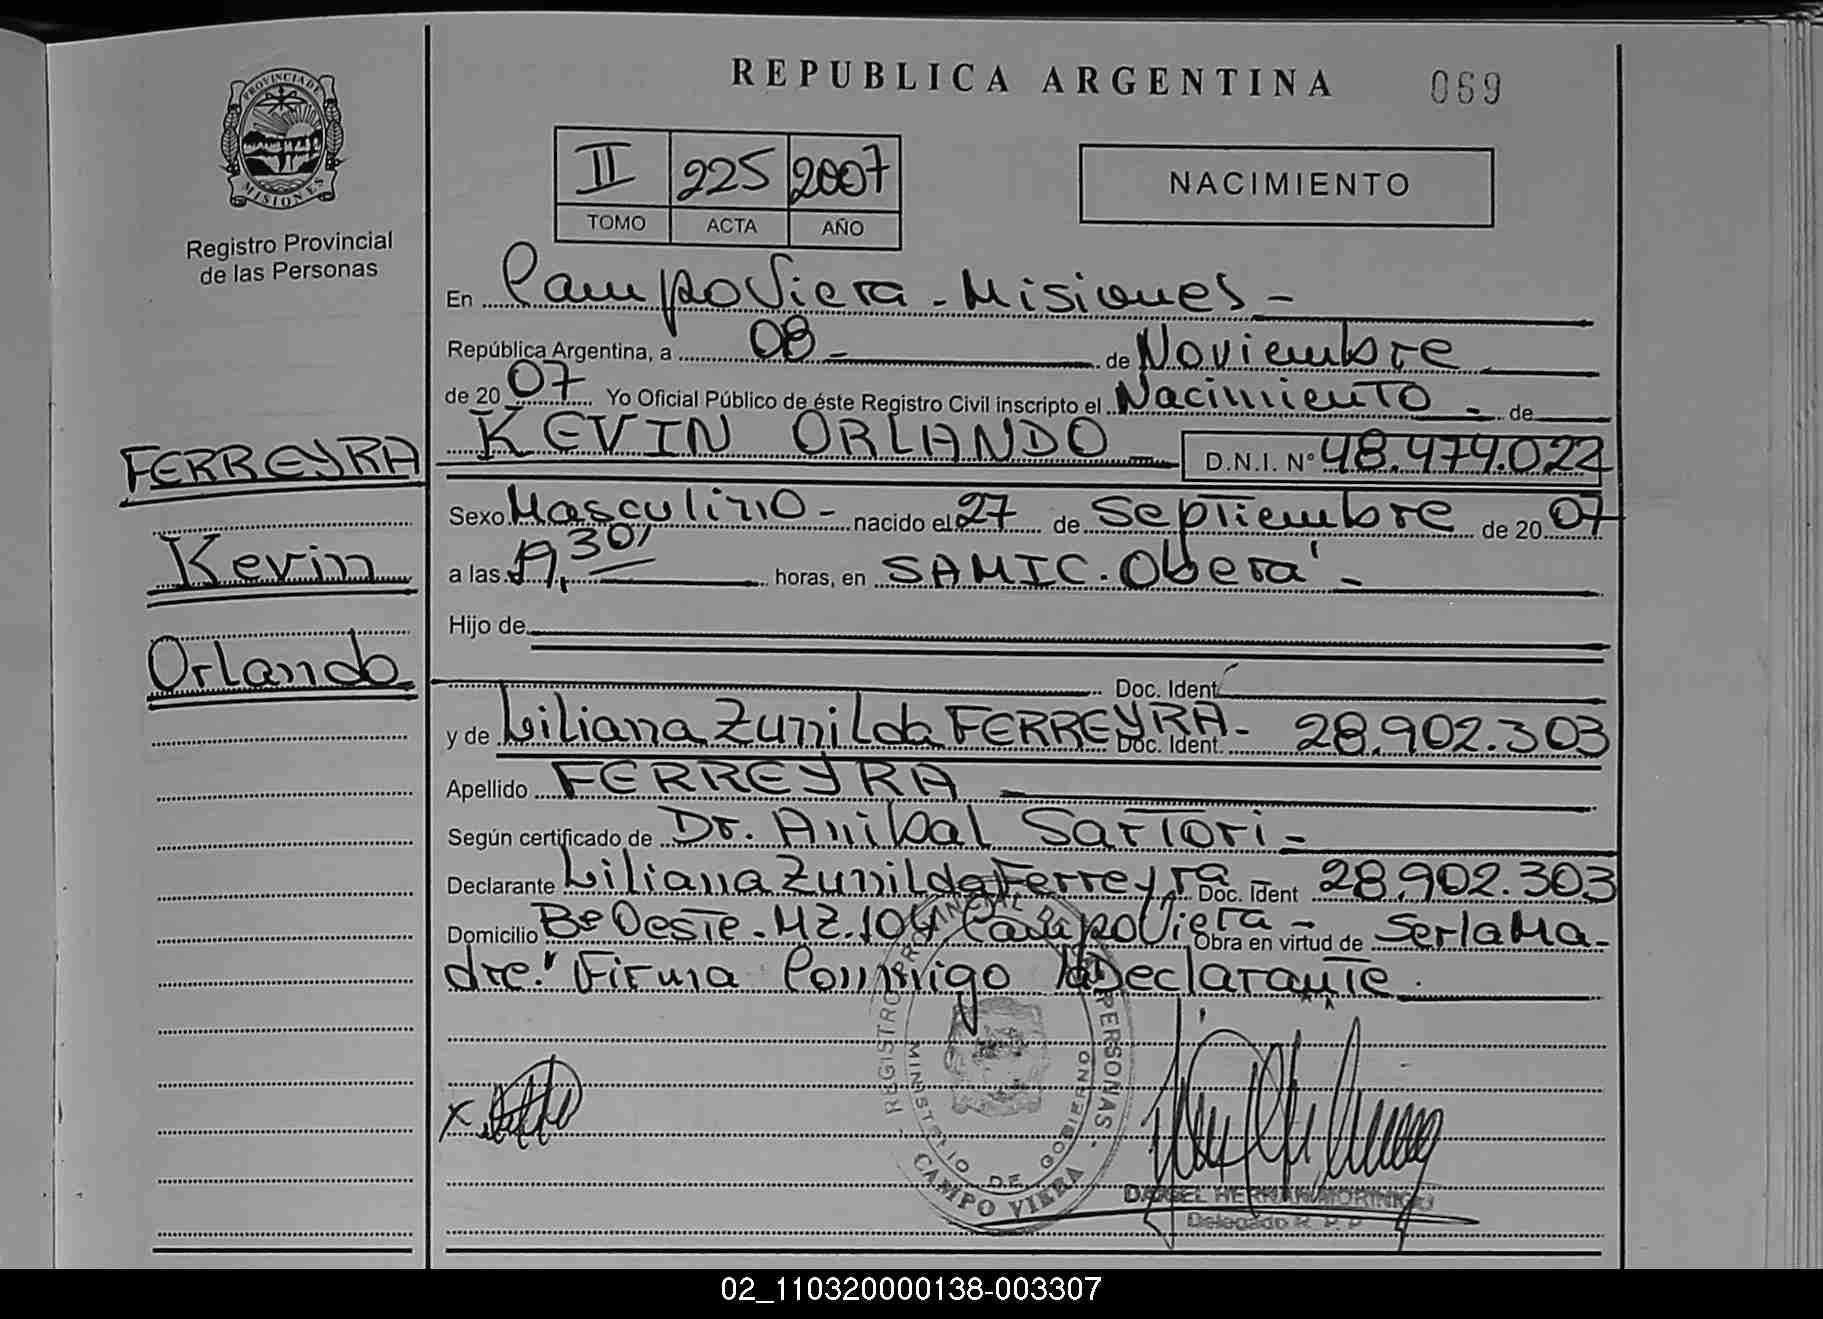 REPUBLICA ARGENTINA
069
PROVINCIA DE
MISIONES
Registro Provincial
de las Personas
II 225 2007
TOMO ACTA AÑO
NACIMIENTO
En Campo Viera - Misiones -
República Argentina, a 08 - de Noviembre
de 2007 Yo Oficial Público de éste Registro Civil inscripto el Nacimiento - de
KEVIN ORLANDO - D.N.I. N° 48.474.022
FERREYRA
Kevin
Orlando
Sexo Masculino - nacido el 27 de Septiembre de 2007
a las 19,30' horas, en SAMIC. Oberá -
Hijo de
Doc. Ident
y de Liliana Zunilda FERREYRA - Doc. Ident. 28.902.303
Apellido FERREYRA
Según certificado de Dr. Anibal Sartori -
Declarante Liliana Zunilda Ferreyra - Doc. Ident 28.902.303
Domicilio B° Oeste - MZ. 104 Campo Viera - Obra en virtud de Ser la Ma-
dre." Firma Conmigo la Declarante.
REGISTRO PROVINCIAL DE PERSONAS -
MINISTERIO DE GOBIERNO
CAMPO VIERA
X
DANIEL HERNAN MORINIGO
Delegado R. P. P.
02_110320000138-003307